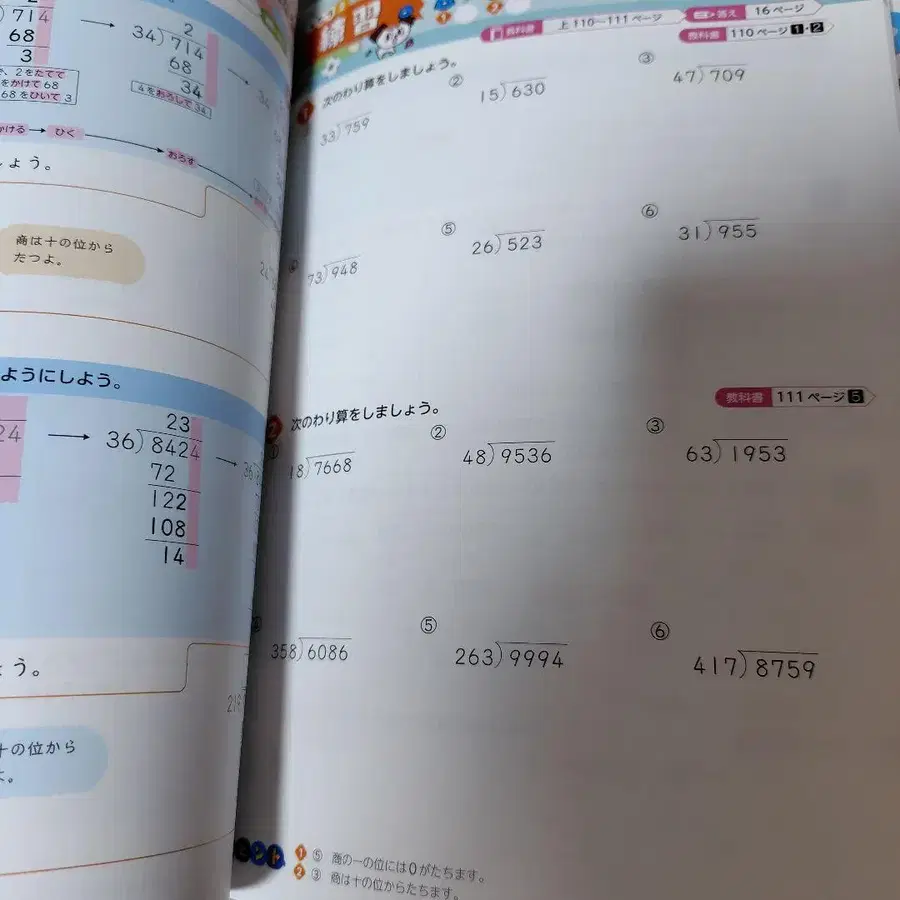 714
68
3
で、2をたてて
をかけて68
68をひいて3
2
34)714
68
34
4をおろして34
34
かける→ひく
おろす
しょう。
商は十の位から
たつよ。
ようにしよう。
24
23
36)8424
72
122
108
14
36
う。
十の位から
よ。
練習
教科書 上110~111ページ
答え 16ページ
教科書 110ページ 1・2
1 次のわり算をしましょう。
33)759
② 15)630
③ 47)709
④ 73)948
⑤ 26)523
⑥ 31)955
教科書 111ページ 5
2 次のわり算をしましょう。
① 18)7668
② 48)9536
③ 63)1953
④ 358)6086
⑤ 263)9994
⑥ 417)8759
ヒント
1 ⑤ 商の一の位には0がたちます。
2 ③ 商は十の位からたちます。